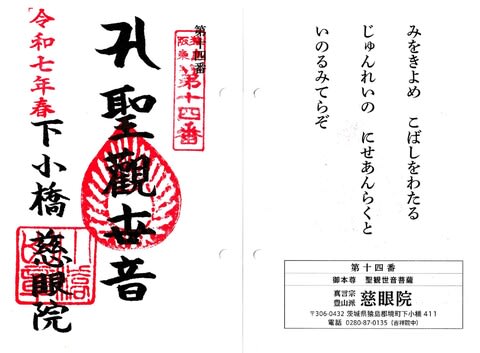 みをきよめ　こばしをわたる
じゅんれいの　にせあんらくと
いのるみてらぞ
第十四番
御本尊　聖観世音菩薩
真言宗
豊山派
慈眼院
〒306-0432 茨城県猿島郡境町下小橋 411
電話 0280-87-0135（吉祥院中）
第十四番
第十四番
聖觀世音
下小橋 慈眼院
令和七年春